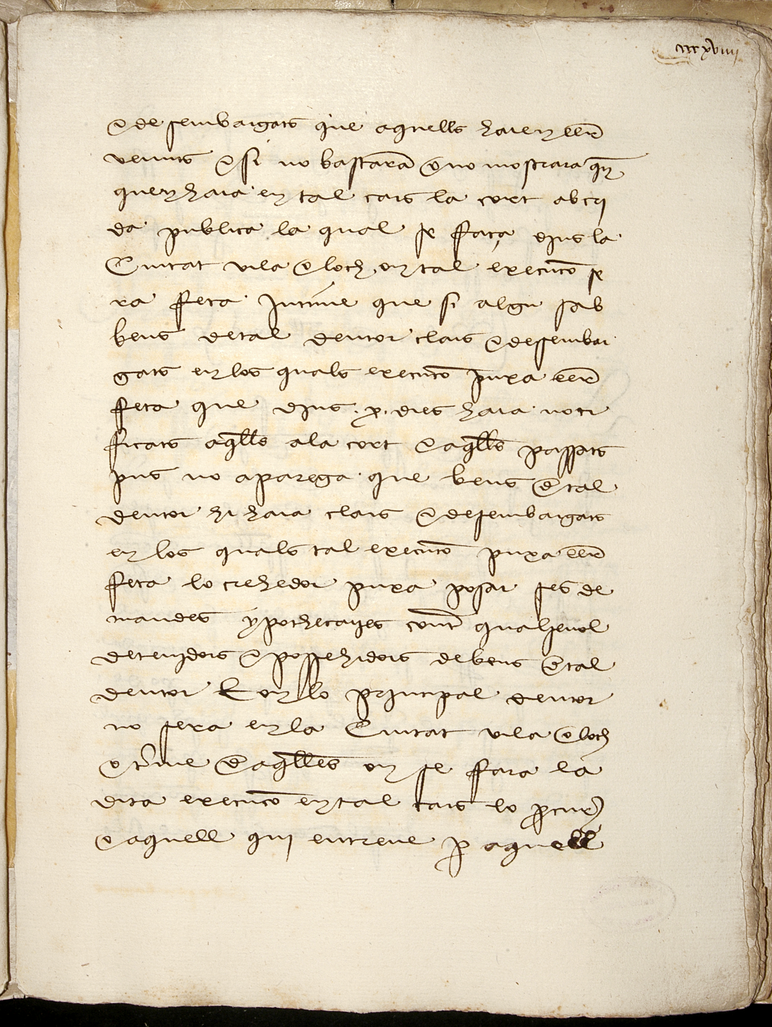 cccxviiii
e desembargats que aquells haien eser
venuts E si no bastara o no mostrara q̃
queny haia en tal cars la cort ab cri
da publica la qual se faça dins la
Ciutat vila o loch on tal execucio se
ra feta Intime que si algu sab
bens de tal deutor clars e desembar
gats en los quals execucio puxa eser
feta que dins .x. dies haia noti
ficats aq̃lls a la cort e aq̃lls passats
pus no aparega que bens de tal
deutor hi haia clars e desembargats
en los quals tal execucio puxa eser
feta lo crehedor puxa posar ses de
mandes ypothecaries cont̃ qualseuol
detenidors e possehidors de bens de tal
deutor E on lo principal deutor
no sera en la Ciutat vila o loch
o t̃me de aq̃lles on se fara la
dita execucio en tal cars lo p̃cur̃
o aquell qui entreue p̱ aquell